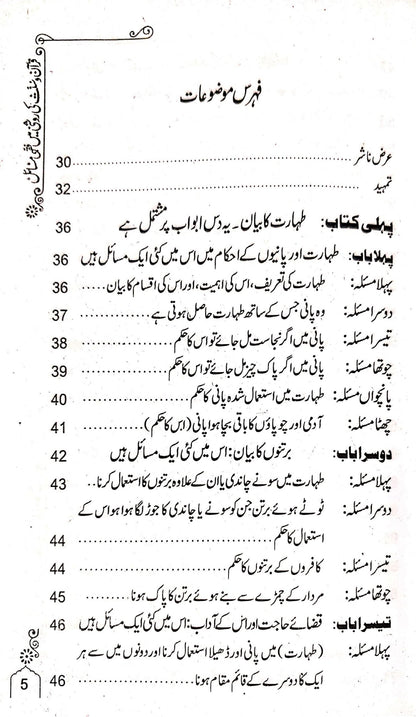 قرآن وسنت کی روشنی میں فقہی مسائل
فہرس موضوعات
عرض ناشر ........ 30
تمہید ........ 32
پہلی کتاب: طہارت کا بیان۔ یہ دس ابواب پر مشتمل ہے 36
پہلا باب: طہارت اور پانیوں کے احکام میں اس میں کئی ایک مسائل ہیں 36
پہلا مسئلہ: طہارت کی تعریف، اس کی اہمیت، اور اس کی اقسام کا بیان ..... 36
دوسرا مسئلہ: وہ پانی جس کے ساتھ طہارت حاصل ہوتی ہے ........ 37
تیسرا مسئلہ: پانی میں اگر نجاست مل جائے تو اس کا حکم ........ 38
چوتھا مسئلہ: پانی میں اگر پاک چیز مل جائے تو اس کا حکم ........ 39
پانچواں مسئلہ: طہارت میں استعمال شدہ پانی کا حکم ........ 40
چھٹا مسئلہ: آدمی اور چوپاؤں کا باقی بچا ہوا پانی (اس کا حکم) ........ 41
دوسرا باب: برتنوں کا بیان: اس میں کئی ایک مسائل ہیں 42
پہلا مسئلہ: طہارت میں سونے چاندی یا ان کے علاوہ برتنوں کا استعمال کرنا .. 43
دوسرا مسئلہ: ٹوٹے ہوئے برتن جن کو سونے یا چاندی کا جوڑ لگا ہوا ہو اس کے
استعمال کا حکم ........ 44
تیسرا مسئلہ: کافروں کے برتنوں کا حکم ........ 44
چوتھا مسئلہ: مردار کے چمڑے سے بنے ہوئے برتن کا پاک ہونا ........ 45
تیسرا باب: قضائے حاجت اور اس کے آداب: اس میں کئی ایک مسائل ہیں 46
پہلا مسئلہ: (طہارت) میں پانی اور ڈھیلا استعمال کرنا اور دونوں میں سے ہر
ایک کا دوسرے کے قائم مقام ہونا ........ 46
5